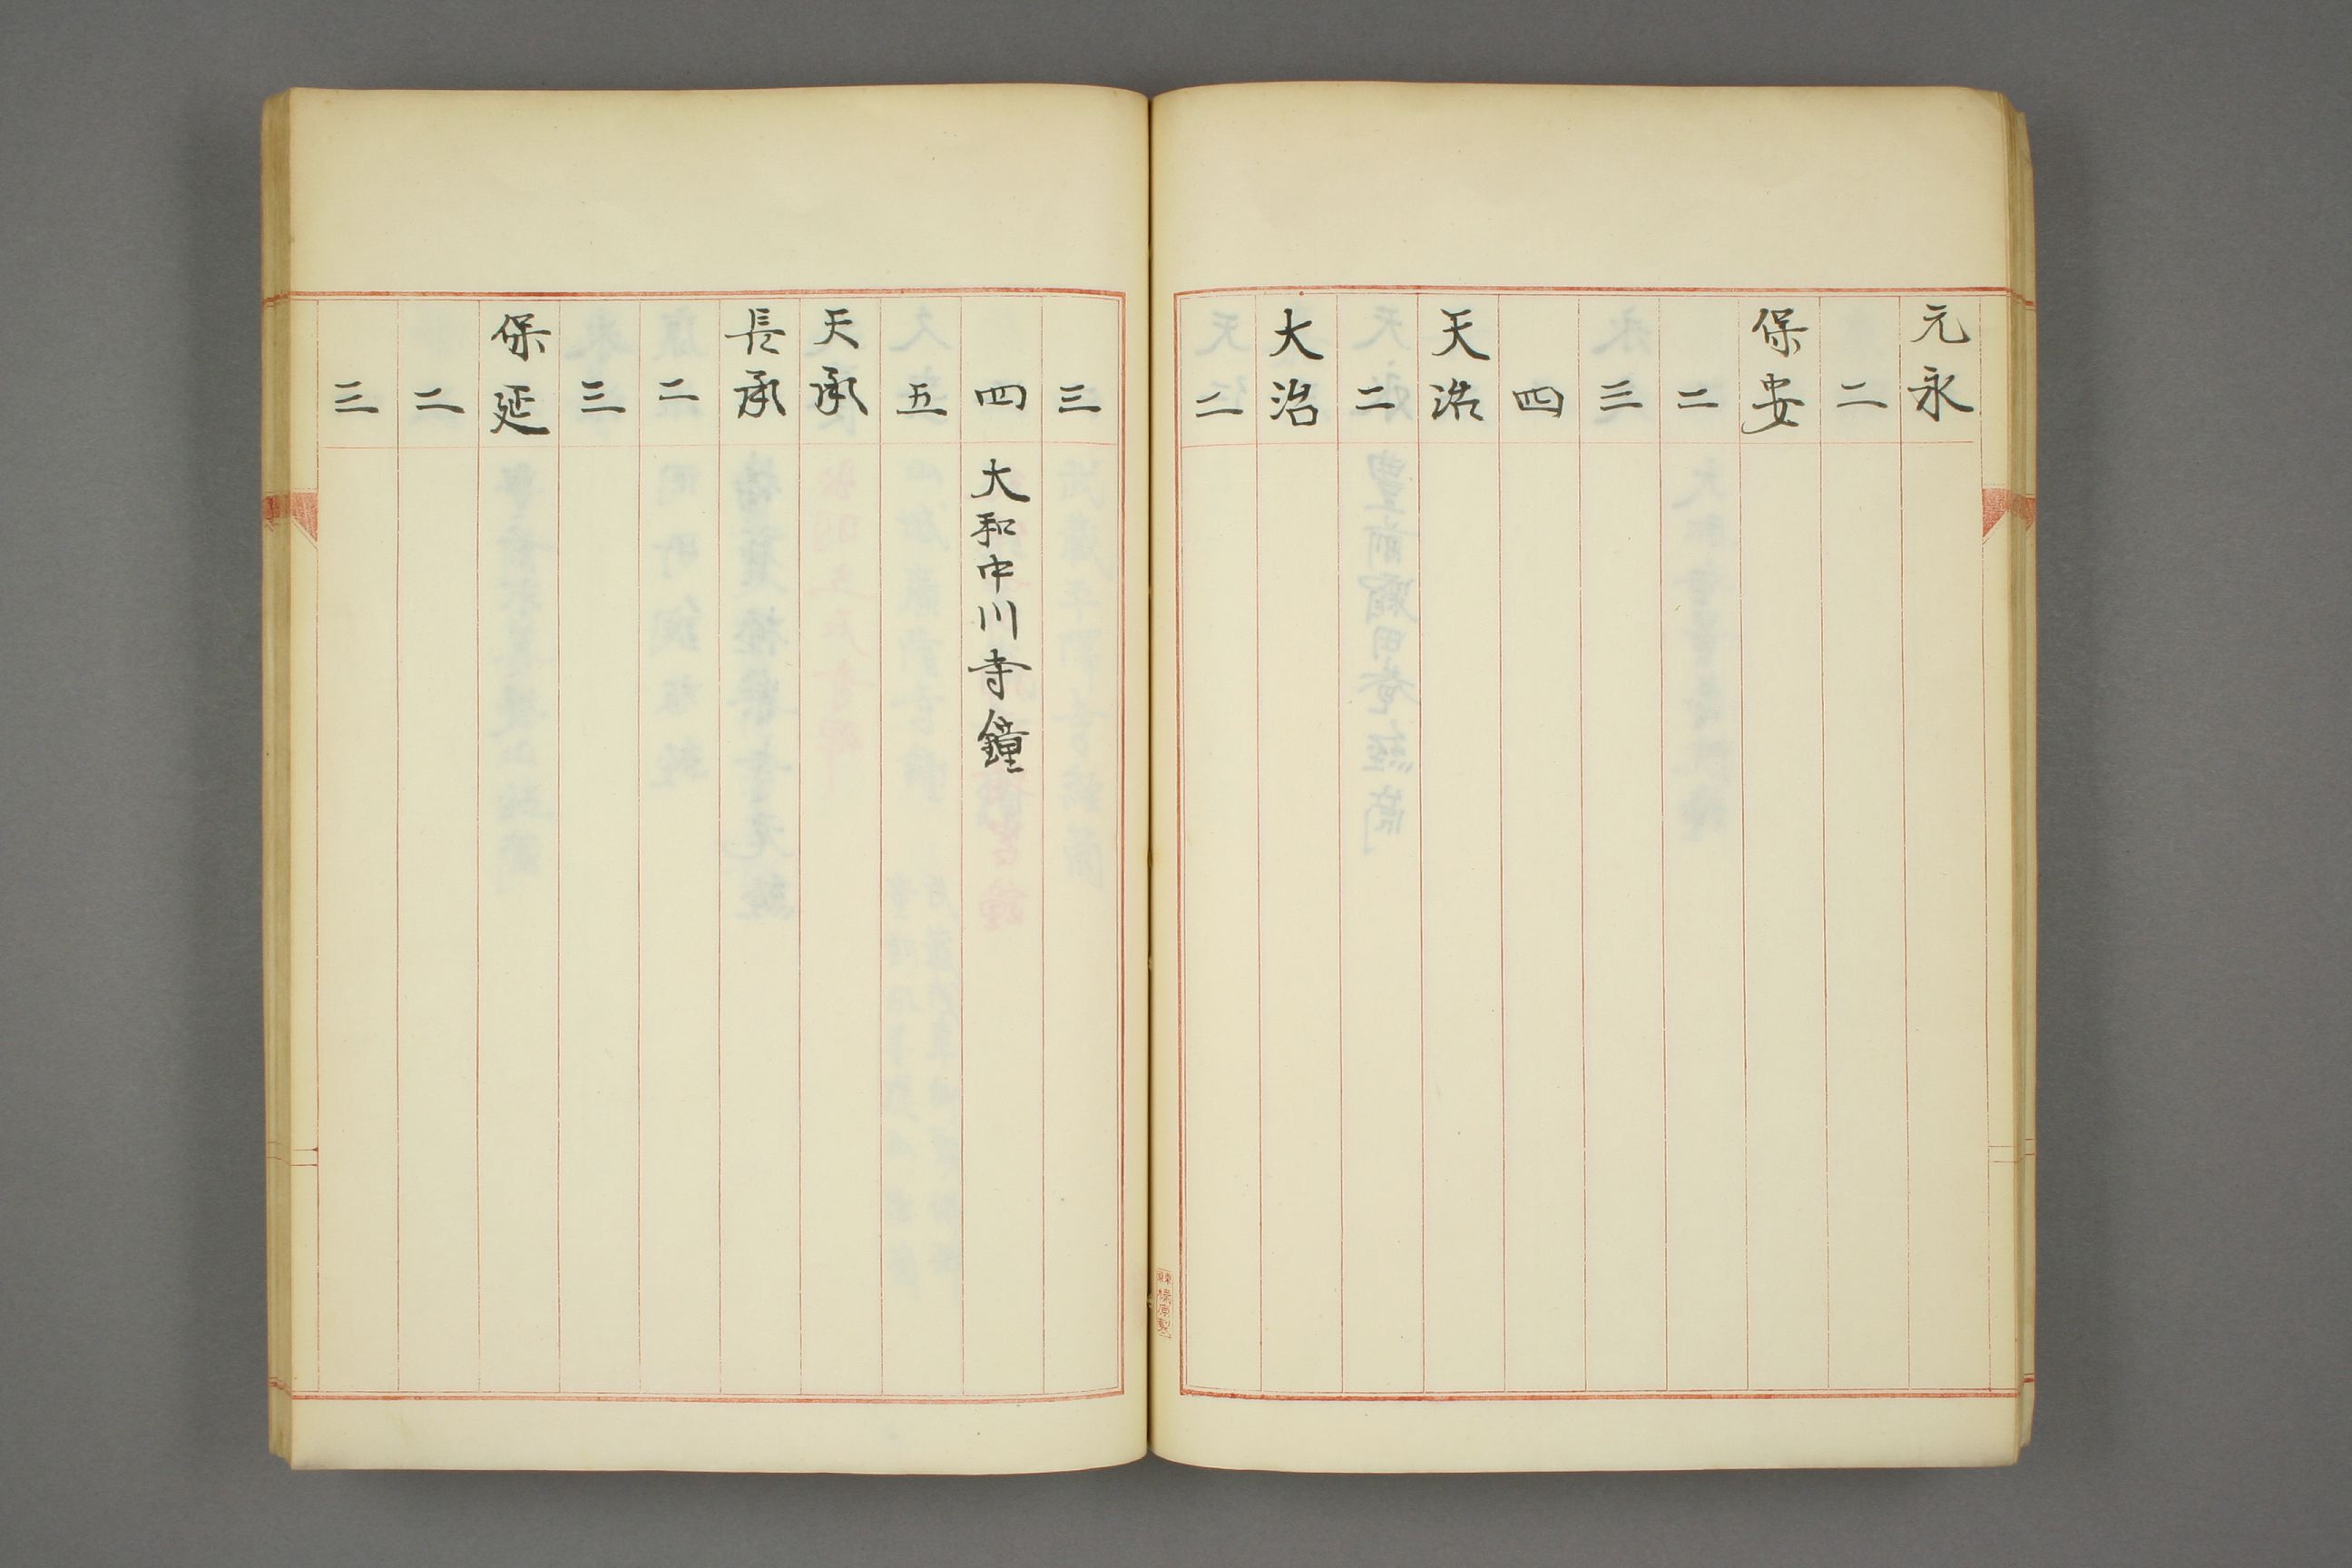 元永
二
保安
二
三
四
天治
二
大治
二
三
四 大和中川寺鐘
五
天承
長承
二
三
保延
二
三
榛原製